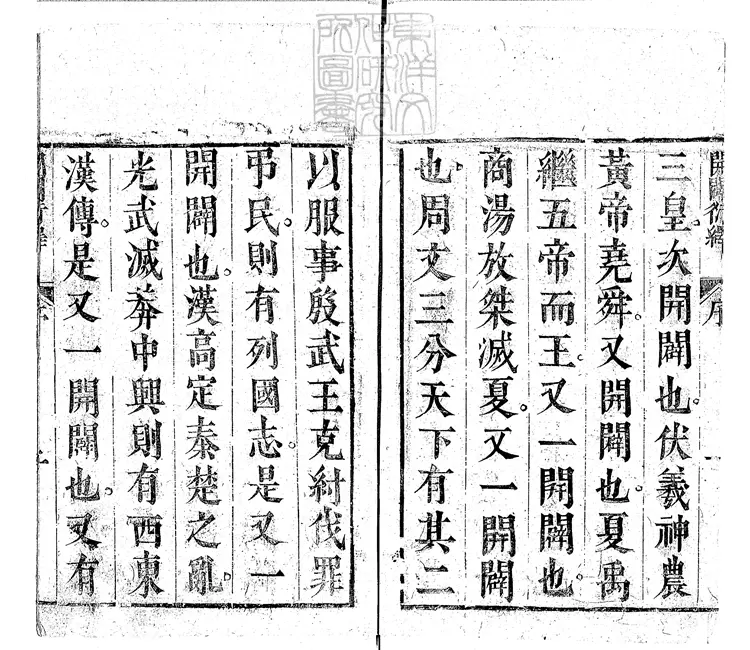 開闢衍繹
序
三皇次開闢也伏羲神農
黃帝堯舜又開闢也夏禹
繼五帝而王又一開闢也
商湯放桀滅夏又一開闢
也周文三分天下有其二
以服事殷武王克紂伐罪
弔民則有列國志是又一
開闢也漢高定秦楚之亂
光武滅莽中興則有西東
漢傳是又一開闢也又有
東洋文
化研究
所圖書